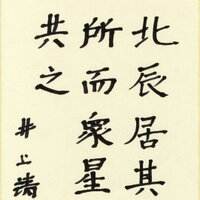 北辰居其
所而衆星
共之
井上涛